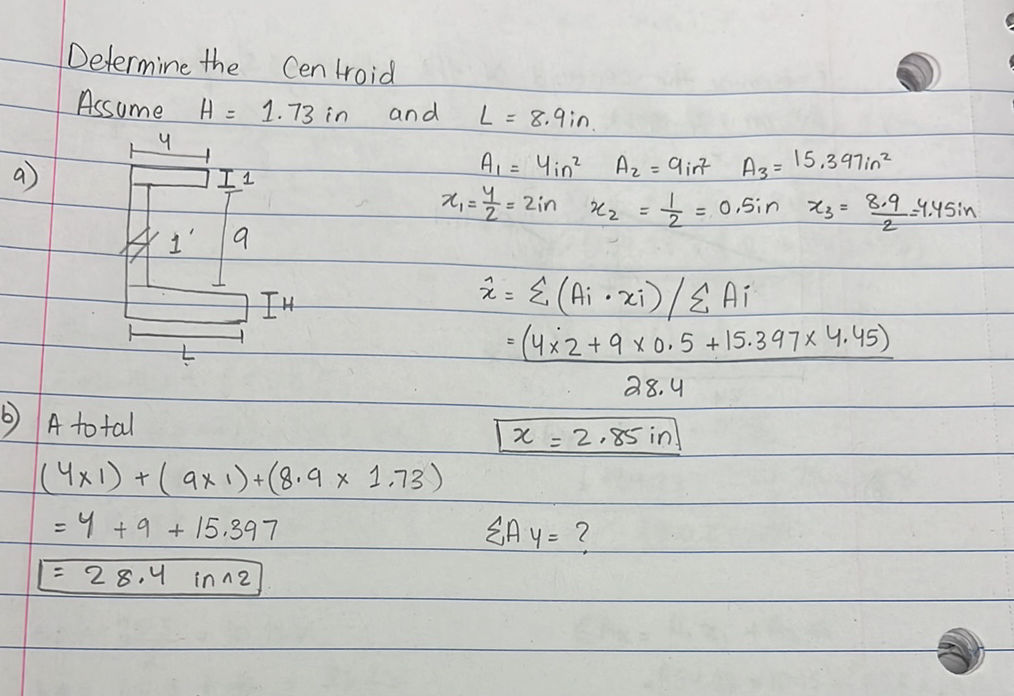 Determine the Centroid
Assume H = 1.73 in and L = 8.9 in.
a)
4
I 1
1'
9
I H
L
A₁ = 4in² A₂ = 9in² A₃ = 15.397in²
x₁ = 4/2 = 2in x₂ = 1/2 = 0.5in x₃ = 8.9/2 = 4.45in
x̂ = Σ(Ai · xi) / Σ Ai
= (4×2 + 9 × 0.5 + 15.397 × 4.45)
28.4
x = 2.85 in
b) A total
(4×1) + (9×1) + (8.9 × 1.73)
= 4 + 9 + 15.397
= 28.4 in^2
ΣAy = ?